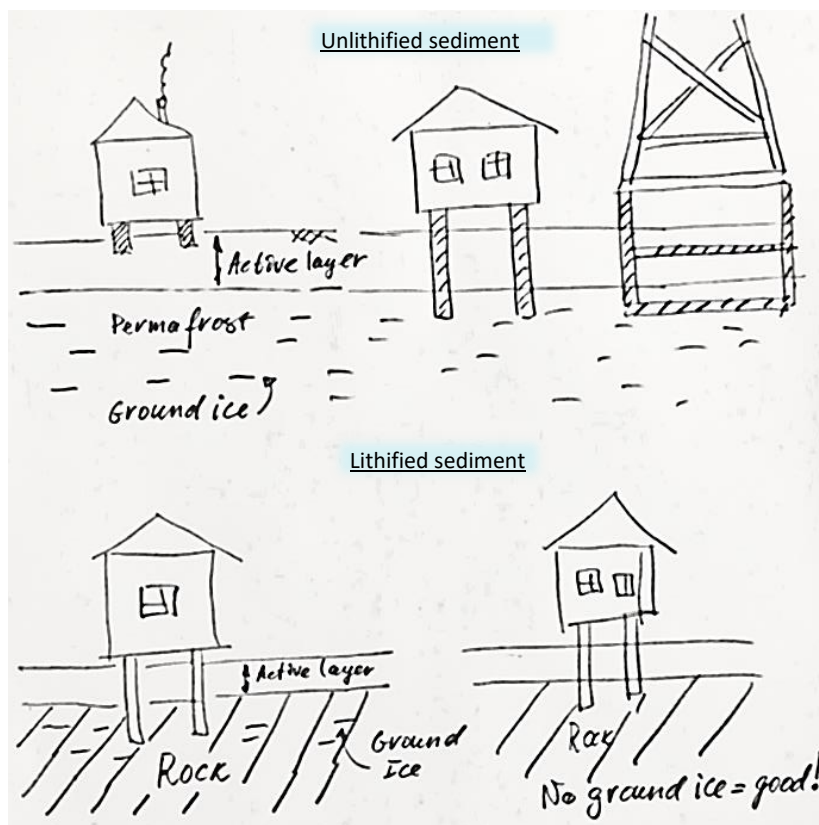 Unlithified sediment
Active layer
Permafrost
Ground ice
Lithified sediment
Active layer
Ground
Ice
Rock
Rock
No ground ice = good!